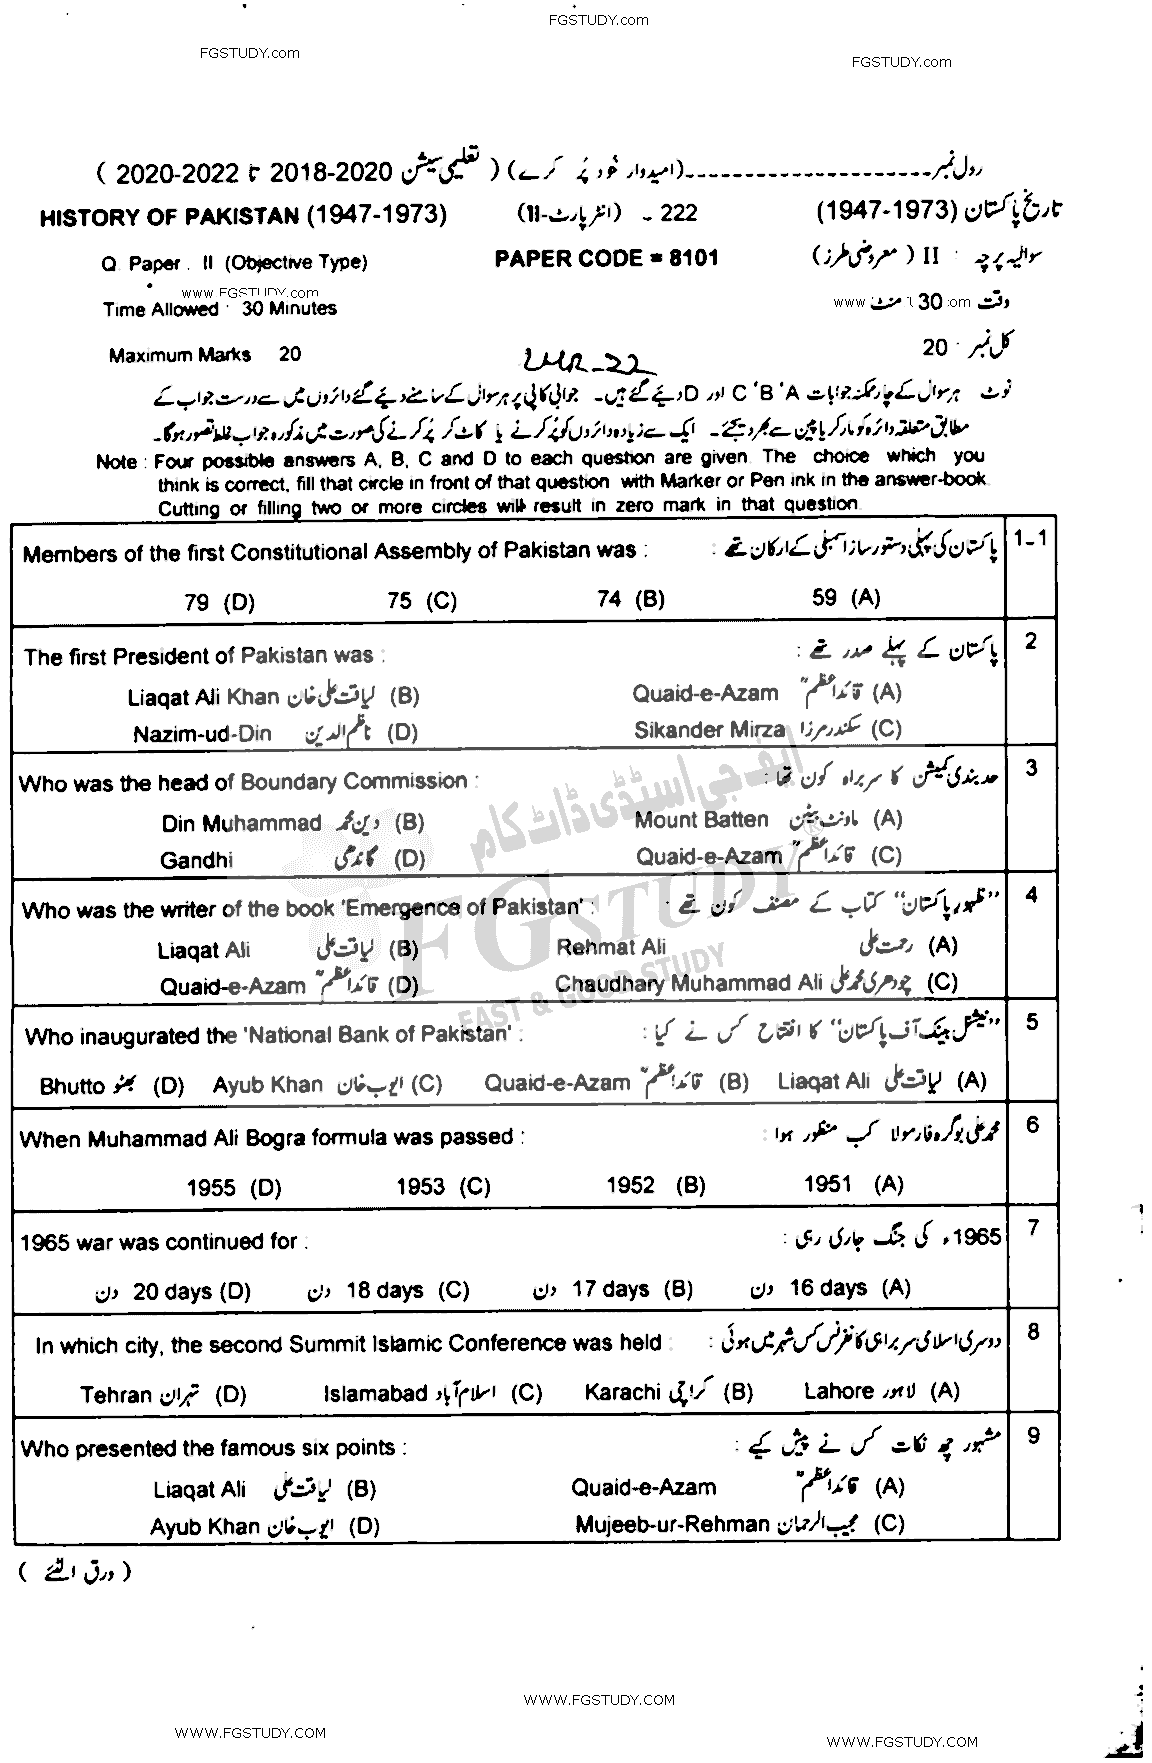 FGSTUDY.com
FGSTUDY.com
FGSTUDY.com
رول نمبر ---------------------(امیدوار خود پُر کرے) ( تعلیمی سیشن 2018-2020 تا 2020-2022 )
HISTORY OF PAKISTAN (1947-1973) 222 - (انٹر پارٹ-II) تاریخ پاکستان (1947-1973)
Q. Paper : II (Objective Type) PAPER CODE = 8101 سوالیہ پرچہ : II ( معروضی طرز)
www FGSTUDY.com
Time Allowed : 30 Minutes www 30 منٹ om وقت
Maximum Marks 20 LHR-22 20 : کل نمبر
نوٹ ہر سوال کے چار ممکنہ جوابات C 'B 'A اور D دیئے گئے ہیں۔ جوابی کاپی پر ہر سوال کے سامنے دیئے گئے دائروں میں سے درست جواب کے
مطابق متعلقہ دائرہ کو مارکر یا پین سے بھر دیجئے۔ ایک سے زیادہ دائروں کو پُر کرنے یا کاٹ کر پُر کرنے کی صورت میں مذکورہ جواب غلط تصور ہوگا۔
Note : Four possible answers A, B, C and D to each question are given. The choice which you
think is correct, fill that circle in front of that question with Marker or Pen ink in the answer-book.
Cutting or filling two or more circles will result in zero mark in that question.
Members of the first Constitutional Assembly of Pakistan was : پاکستان کی پہلی دستور ساز اسمبلی کے ارکان تھے : 1-1
79 (D) 75 (C) 74 (B) 59 (A)
The first President of Pakistan was : پاکستان کے پہلے صدر تھے : 2
Liaqat Ali Khan لیاقت علی خان (B) Quaid-e-Azam قائداعظمؒ (A)
Nazim-ud-Din ناظم الدین (D) Sikander Mirza سکندر مرزا (C)
Who was the head of Boundary Commission : حد بندی کمیشن کا سربراہ کون تھا : 3
Din Muhammad دین محمد (B) Mount Batten ماونٹ بیٹن (A)
Gandhi گاندھی (D) Quaid-e-Azam قائداعظمؒ (C)
Who was the writer of the book 'Emergence of Pakistan' : ”ظہور پاکستان“ کتاب کے مصنف کون تھے : 4
Liaqat Ali لیاقت علی (B) Rehmat Ali رحمت علی (A)
Quaid-e-Azam قائداعظمؒ (D) Chaudhary Muhammad Ali چودھری محمد علی (C)
Who inaugurated the 'National Bank of Pakistan' : ”نیشنل بینک آف پاکستان“ کا افتتاح کس نے کیا : 5
Bhutto بھٹو (D) Ayub Khan ایوب خان (C) Quaid-e-Azam قائداعظمؒ (B) Liaqat Ali لیاقت علی (A)
When Muhammad Ali Bogra formula was passed : محمد علی بوگرہ فارمولا کب منظور ہوا : 6
1955 (D) 1953 (C) 1952 (B) 1951 (A)
1965 war was continued for : 1965ء کی جنگ جاری رہی : 7
دن 20 days (D) دن 18 days (C) دن 17 days (B) دن 16 days (A)
In which city, the second Summit Islamic Conference was held : دوسری اسلامی سربراہی کانفرنس کس شہر میں ہوئی : 8
Tehran تہران (D) Islamabad اسلام آباد (C) Karachi کراچی (B) Lahore لاہور (A)
Who presented the famous six points : مشہور چھ نکات کس نے پیش کیے : 9
Liaqat Ali لیاقت علی (B) Quaid-e-Azam قائداعظمؒ (A)
Ayub Khan ایوب خان (D) Mujeeb-ur-Rehman مجیب الرحمان (C)
( ورق الٹئے )
ایف جی اسٹڈی ڈاٹ کام
FGSTUDY ®
FAST & GOOD STUDY
WWW.FGSTUDY.COM
WWW.FGSTUDY.COM
WWW.FGSTUDY.COM